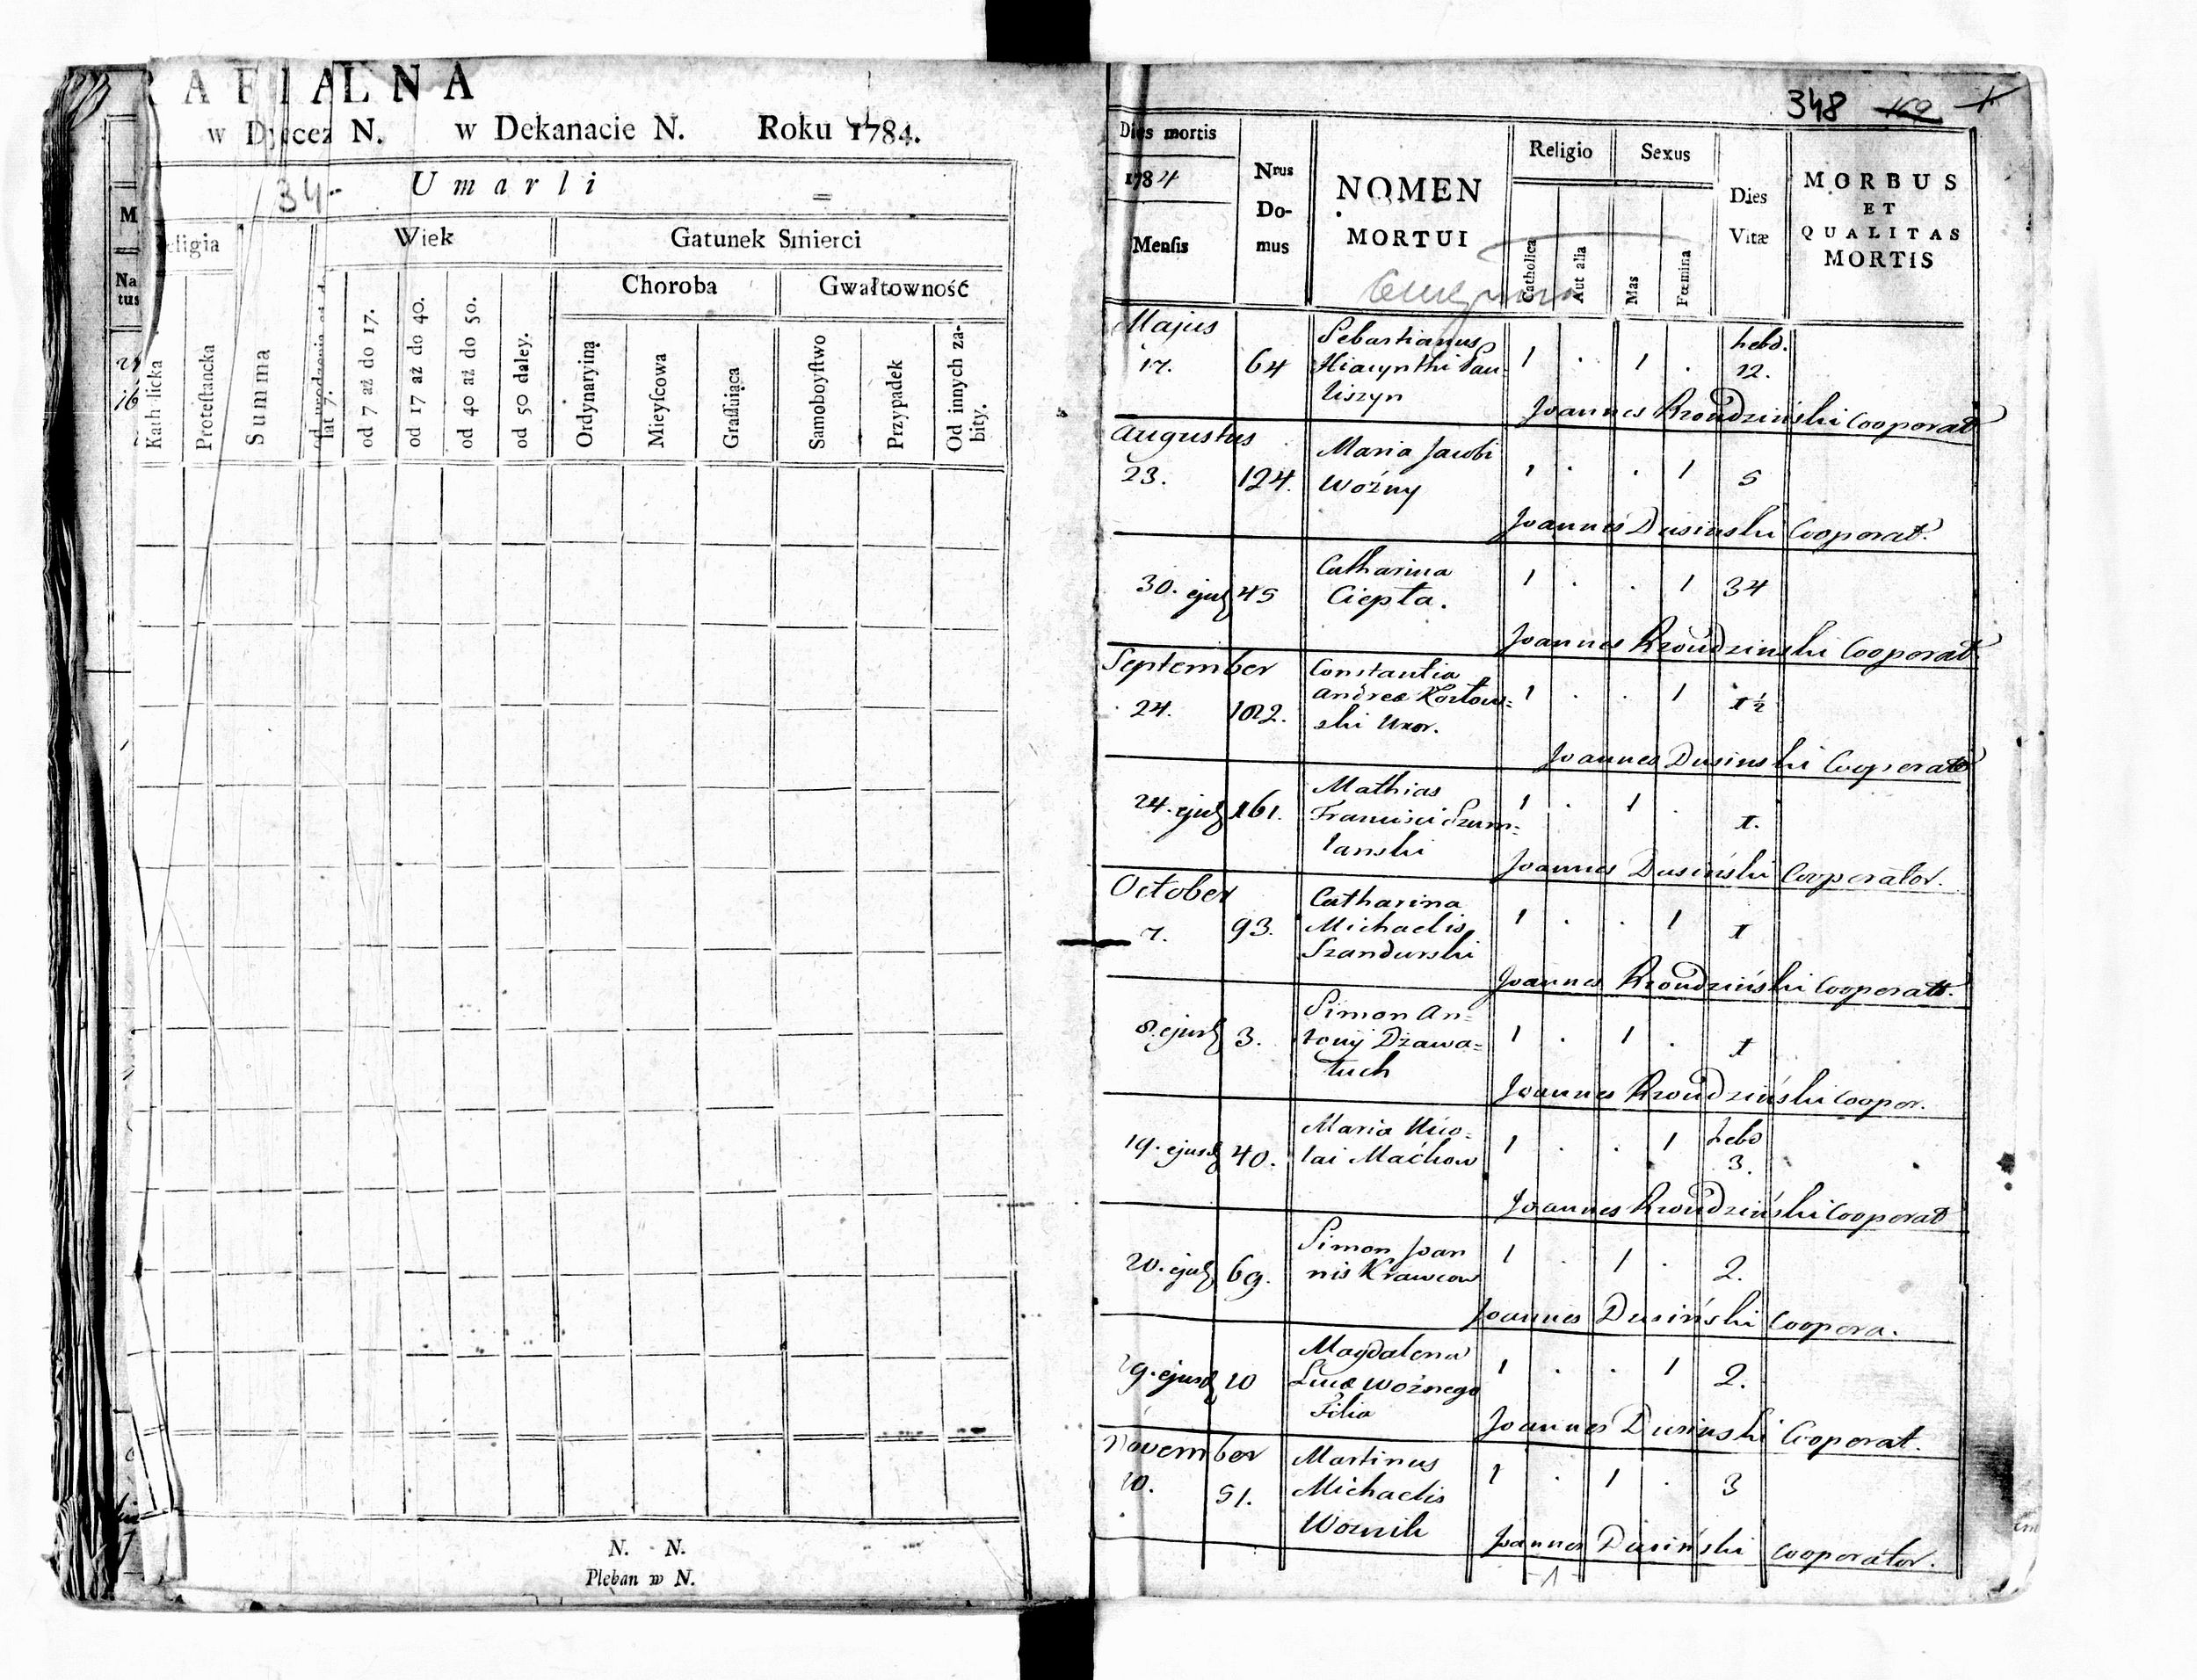 AFIALNA
w Dyecez N. w Dekanacie N. Roku 1784.
34.
Umarli
Wiek
Gatunek Smierci
Choroba
Gwałtowność
Protestancka
Summa
od 7 aż do 17.
od 17 aż do 40.
od 40 aż do 50.
od 50 daley.
Ordynaryina
Mieyscowa
Grassuiąca
Samoboystwo
Przypadek
Od innych zabity.
N. N.
Pleban w N.
348
Dies mortis
1784
Mensis
Nrus
Domus
NOMEN
MORTUI
Religio
Catholica
Aut alia
Sexus
Mas
Fœmina
Dies
Vitæ
MORBUS
ET
QUALITAS
MORTIS
Majus
17. 64 Sebastianus 1 . 1 . hebd. 12.
Hiacynthi Pau-
liszyn
Joannes Cooperat
Augustus
23. 124. Maria Jacobi 1 . . 1 5
Woźny
Joannes Dusinski Cooperat.
30. ejusd 45 Catharina 1 . . 1 34
Ciepła.
Joannes Cooperat
September
24. 102. Constantia 1 . . 1 1½
Andreæ Kozłow=
ski Uxor.
Joannes Dusinski Cooperator
24. ejusd 161. Mathias 1 . 1 . 1.
Francisci Szum=
lanski
Joannes Dusiński Cooperator.
October
7. 93. Catharina 1 . . 1 1
Michaelis
Szandurski
Joannes Cooperat.
8. ejusd 3. Simon An= 1 . 1 . 1
tonij Dzawa=
łuch
Joannes Cooper.
19. ejusd 40. Maria Nico= 1 . . 1 hebd 3.
lai Maćkow
Joannes Cooperat
20. ejusd 69. Simon Joan 1 . 1 . 2.
nis Krawcow
Joannes Dusiński Coopera.
29. ejusd 10 Magdalena 1 . . 1 2.
Lucæ Woźnego
Filia
Joannes Dusinski Cooperat.
November
10. 51. Martinus 1 . 1 . 3
Michaelis
Woznik
Joannes Dusiński Cooperator.